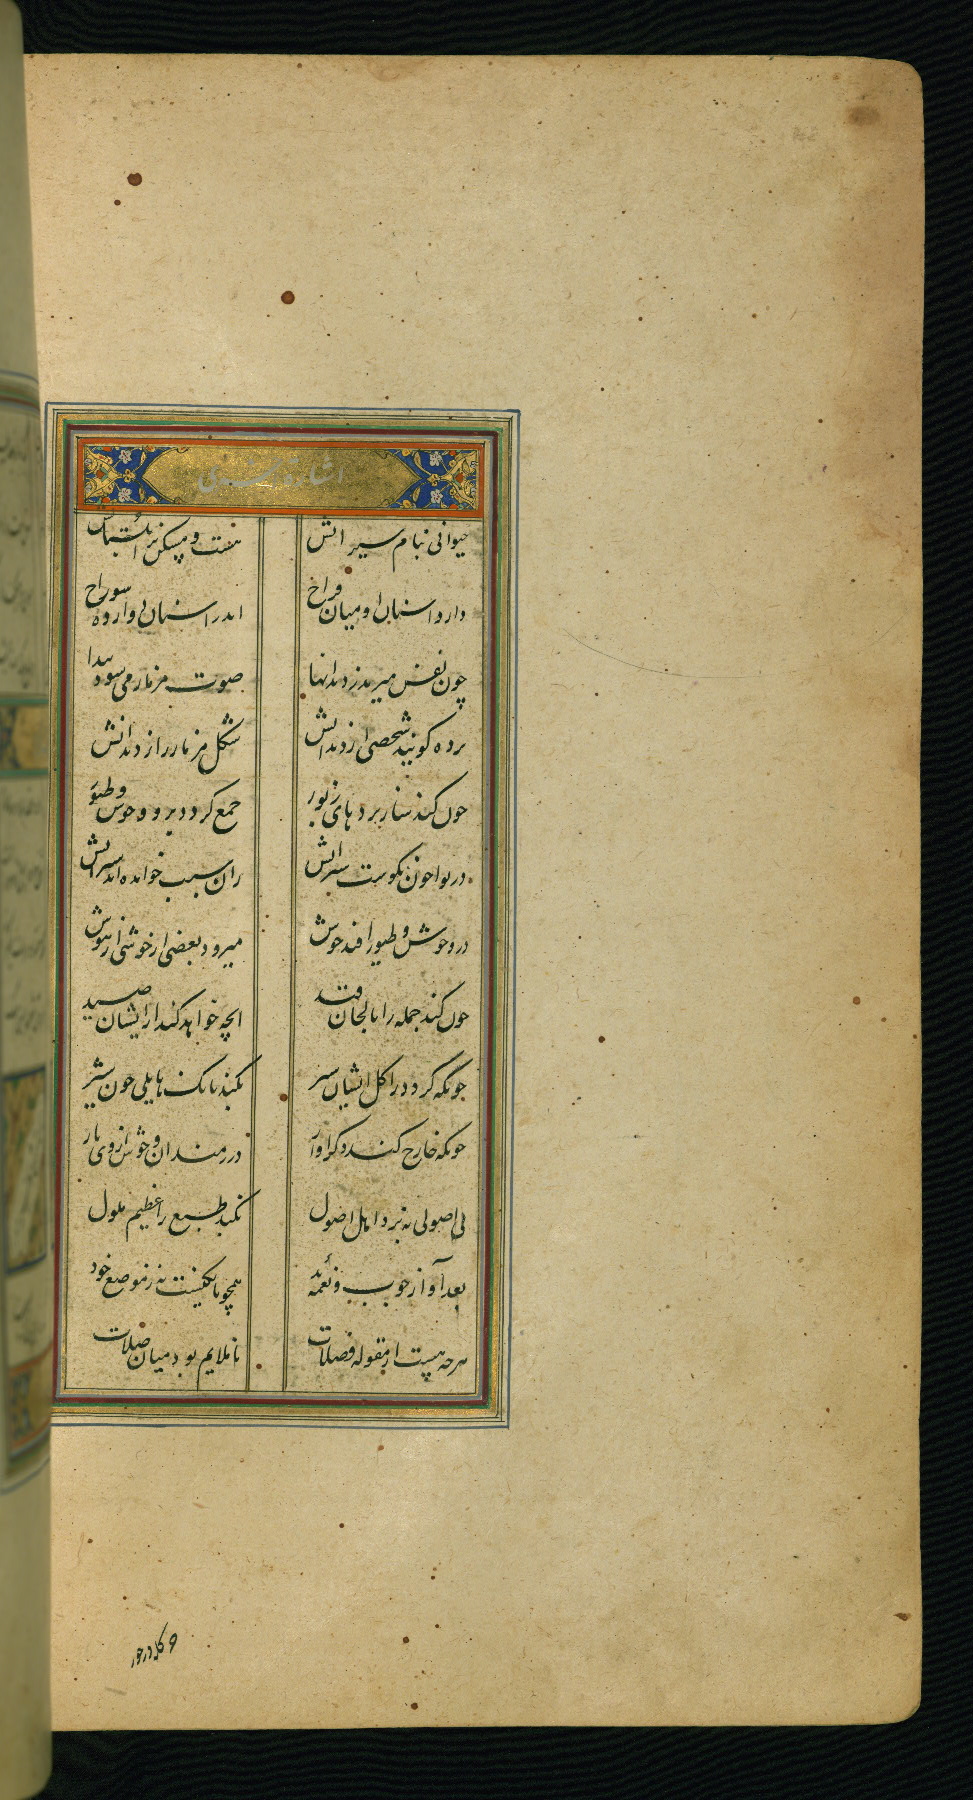 اشاره
حیوانی بنام سیرانش هست و مسکن
دارد استخوان او میان فراخ اندر استخوان وی سوراخ
چون نفس میزند ز دندانها صوت مزمار می شود پیدا
برده گویند شخصی از دندانش شکل مزمار را ز دندانش
چون کند ساز پرده های زبور جمع گردد برو وحوش و طیور
در نوا چون نکوست سیرانش زان سبب خوانده اند سیرانش
در وحوش و طیور افتد جوش میرود بعضی از خوشی از هوش
چون کند جمله را بالحان قید آنچه خواهد کند از ایشان صید
چونکه گردد در اکل ایشان سیر بکند بانک هایلی چون شیر
چونکه خارج کند دگر آواز در رمند آن وحوش از وی باز
بی اصولی نه نزد اهل اصول نکند طبع را عظیم ملول
بعد آواز خوب و نغمه همچو بانکیست نه ز موضع خود
هرچه هست از مقوله فضلات ناملایم بود میان صلات